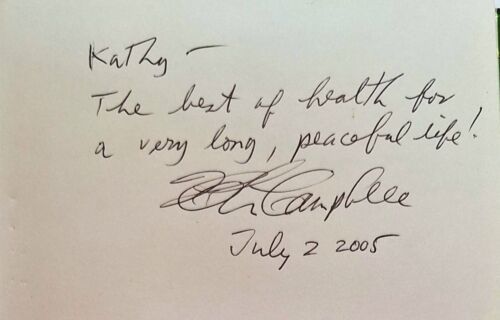 Kathy —
The best of health for
a very long, peaceful life!
Campbell
July 2 2005